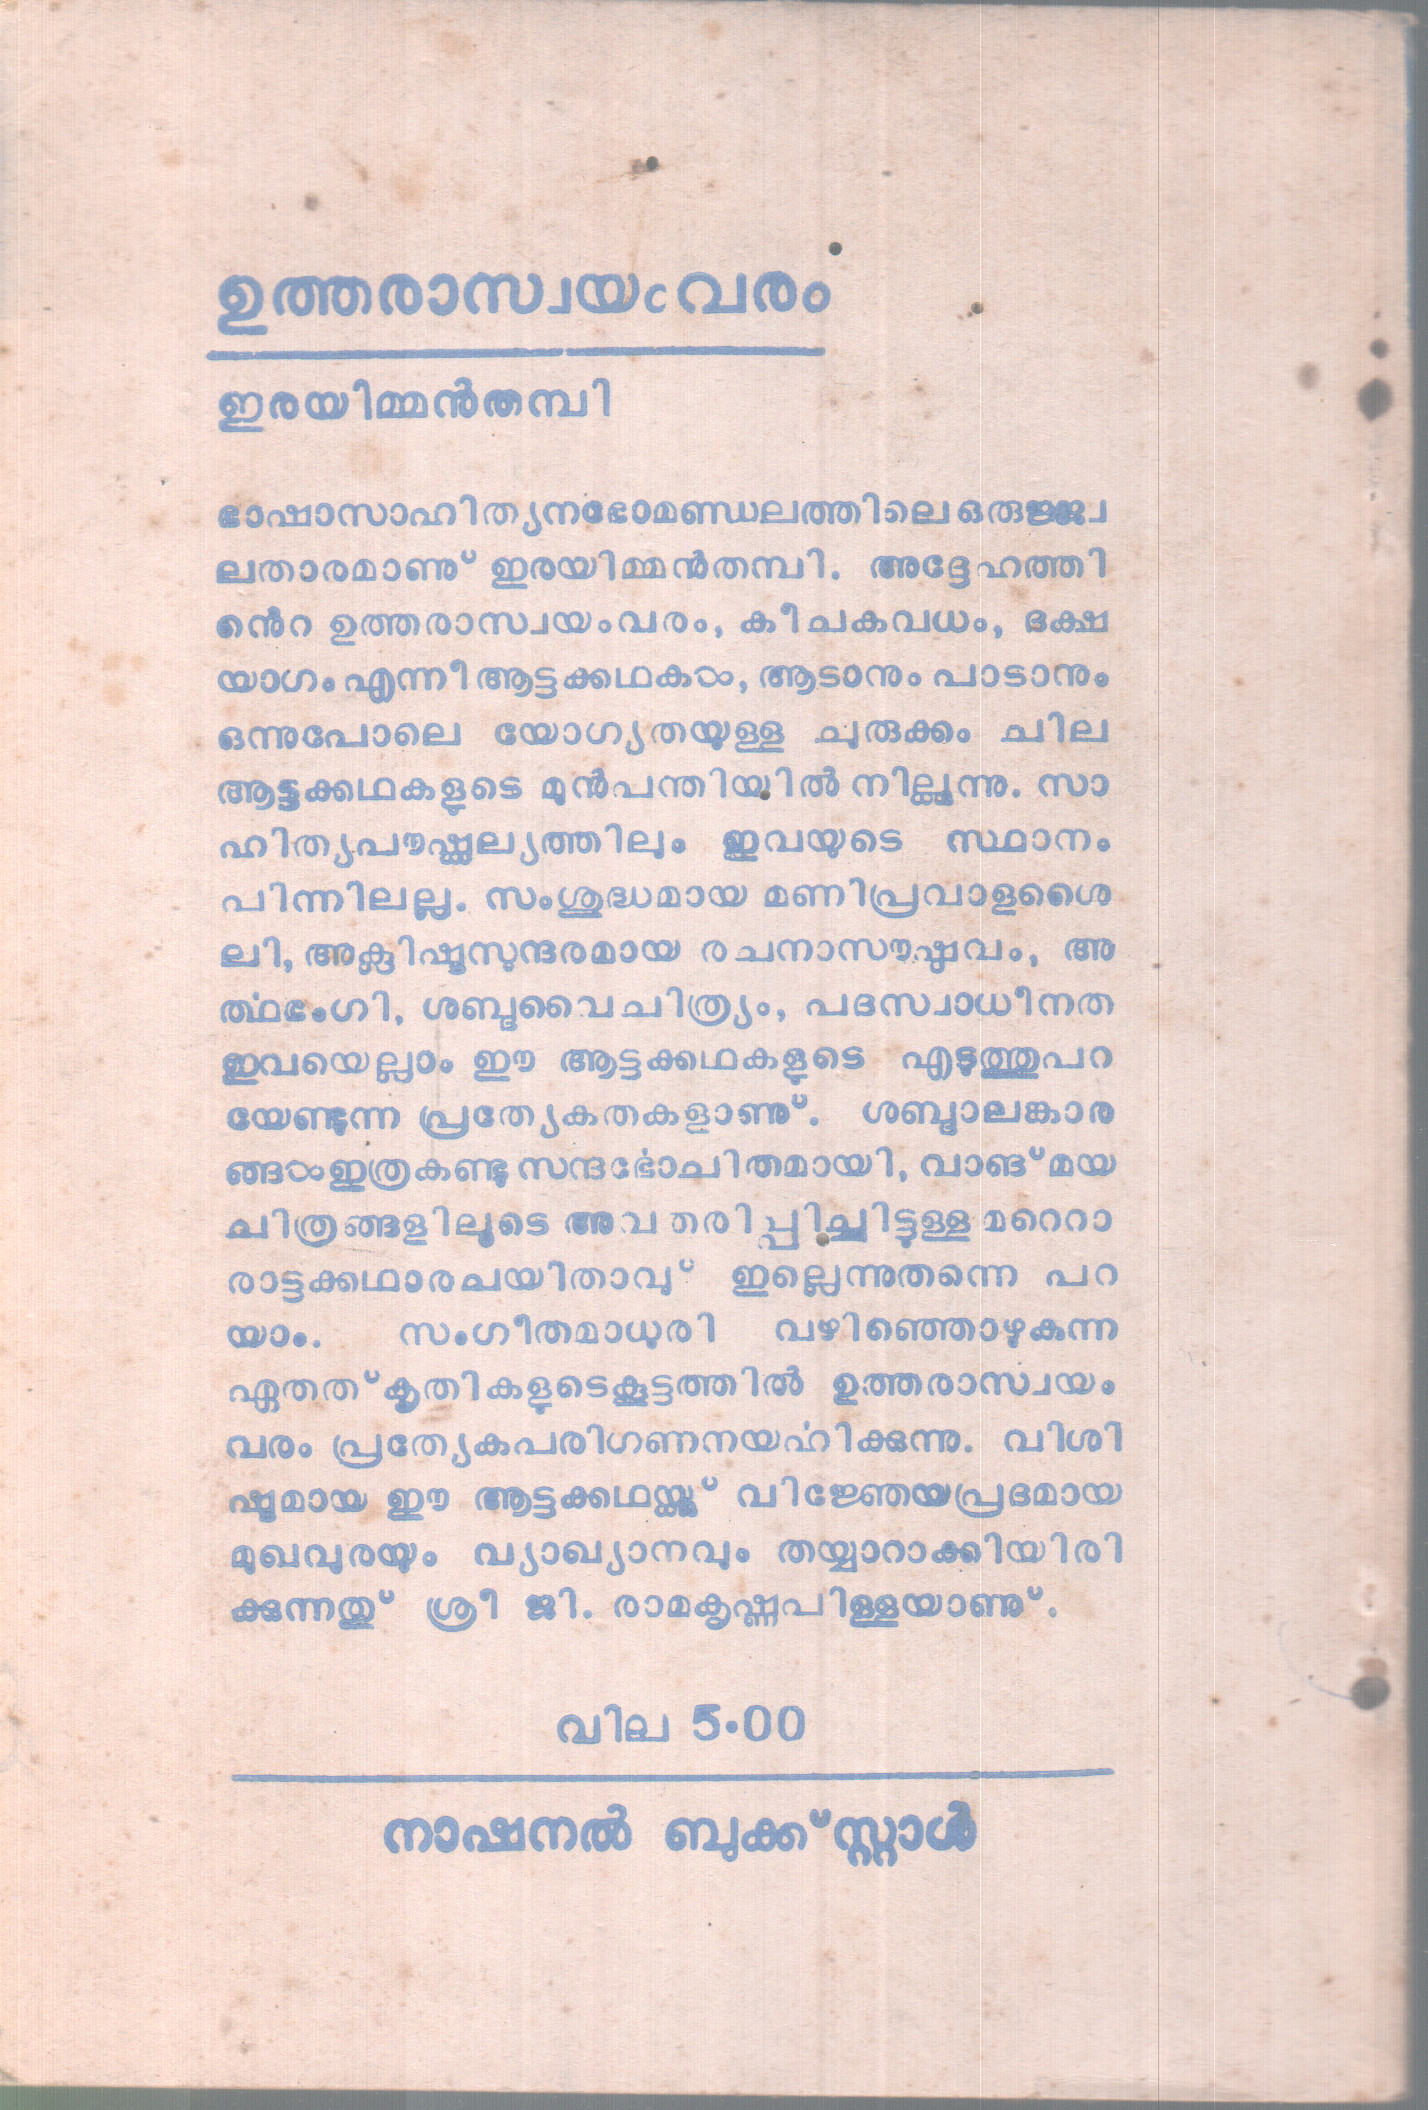 ഉത്തരാസ്വയംവരം
ഇരയിമ്മൻതമ്പി
ഭാഷാസാഹിത്യനഭോമണ്ഡലത്തിലെ ഒരുജ്ജ്വ
ലതാരമാണു് ഇരയിമ്മൻതമ്പി. അദ്ദേഹത്തി
ൻെറ ഉത്തരാസ്വയംവരം, കീചകവധം, ദക്ഷ
യാഗം എന്നീ ആട്ടക്കഥകൾ, ആടാനും പാടാനും
ഒന്നുപോലെ യോഗ്യതയുള്ള ചുരുക്കം ചില
ആട്ടക്കഥകളുടെ മുൻപന്തിയിൽ നില്ക്കുന്നു. സാ
ഹിത്യപൗഷ്കല്യത്തിലും ഇവയുടെ സ്ഥാനം
പിന്നിലല്ല. സംശുദ്ധമായ മണിപ്രവാളശൈ
ലി, അക്ലിഷ്ടസുന്ദരമായ രചനാസൗഷ്ഠവം, അ
ൎത്ഥഭംഗി, ശബ്ദവൈചിത്ര്യം, പദസ്വാധീനത
ഇവയെല്ലാം ഈ ആട്ടക്കഥകളുടെ എടുത്തുപറ
യേണ്ടുന്ന പ്രത്യേകതകളാണു്. ശബ്ദാലങ്കാര
ങ്ങൾ ഇത്രകണ്ടു സന്ദൎഭോചിതമായി, വാങ്മയ
ചിത്രങ്ങളിലൂടെ അവതരിപ്പിച്ചിട്ടുള്ള മറെറാ
രാട്ടക്കഥാരചയിതാവു് ഇല്ലെന്നുതന്നെ പറ
യാം. സംഗീതമാധുരി വഴിഞ്ഞൊഴുകുന്ന
ഏതത്കൃതികളുടെകൂട്ടത്തിൽ ഉത്തരാസ്വയം
വരം പ്രത്യേകപരിഗണനയൎഹിക്കുന്നു. വിശി
ഷ്ടമായ ഈ ആട്ടക്കഥയ്ക്കു് വിജ്ഞേയപ്രദമായ
മുഖവുരയും വ്യാഖ്യാനവും തയ്യാറാക്കിയിരി
ക്കുന്നതു് ശ്രീ ജി. രാമകൃഷ്ണപിള്ളയാണു്.
വില 5·00
നാഷനൽ ബുക്ക് സ്റ്റാൾ